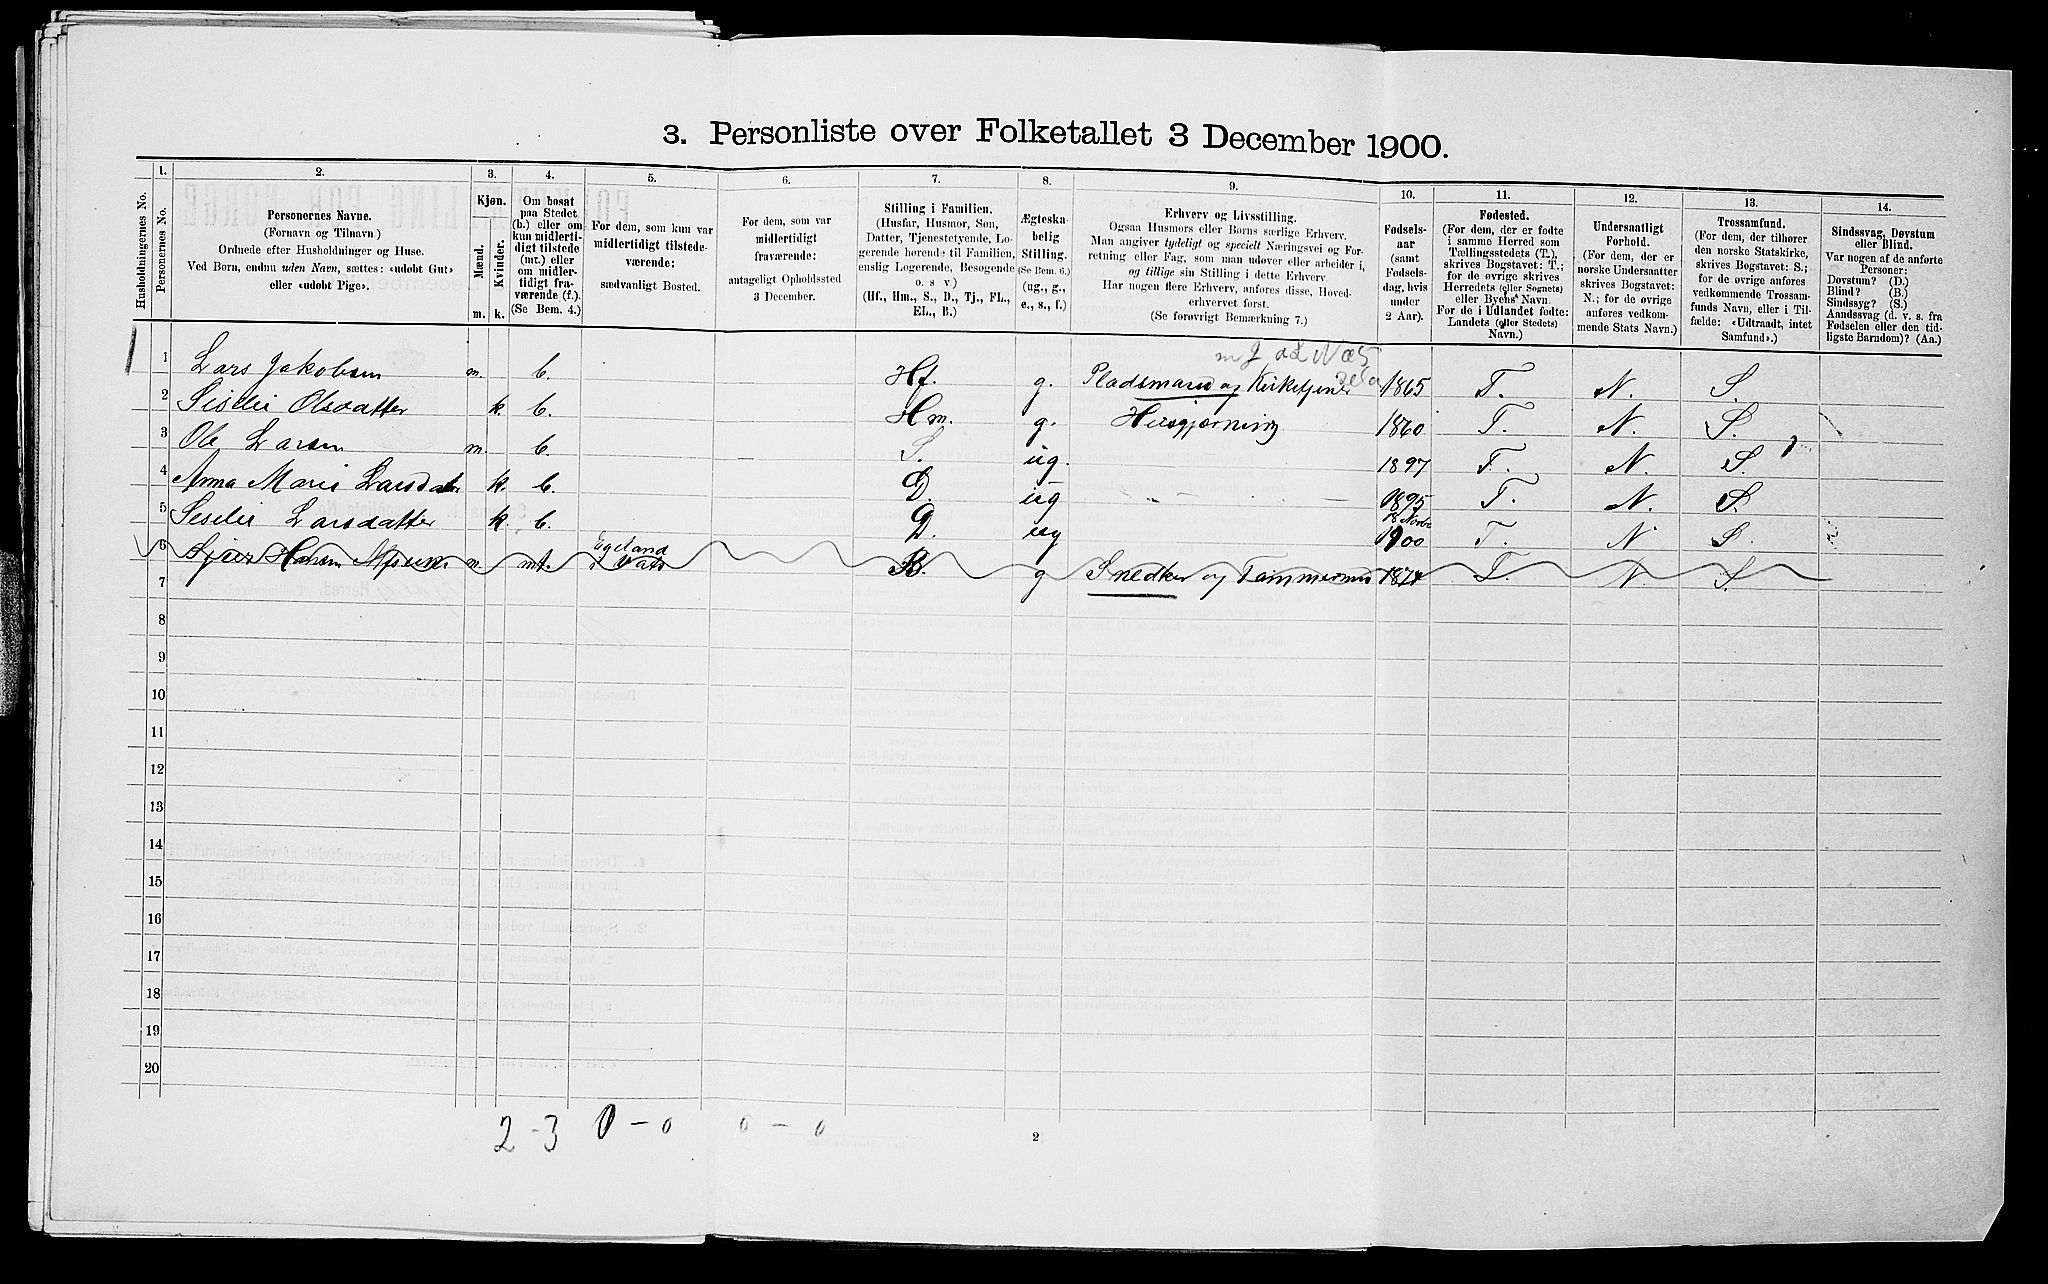 3. Personliste over Folketallet 3 December 1900.
Husholdningernes No.
1.
Personernes No.
2.
Personernes Navne.
(Fornavn og Tilnavn)
Ordnede efter Husholdninger og Huse.
Ved Børn, endnu uden Navn, sættes: «udøbt Gut»
eller «udøbt Pige».
3.
Kjøn.
Mænd.
Kvinder.
m. k.
4.
Om bosat
paa Stedet
(b.) eller om
kun midlerti-
digt tilstede
(mt.) eller
om midler-
tidigt fra-
værende (f.).
(Se Bem. 4.)
5.
For dem, som kun var
midlertidigt tilstede-
værende:
sædvanligt Bosted.
6.
For dem, som var
midlertidigt
fraværende:
antageligt Opholdssted
3 December.
7.
Stilling i Familien.
(Husfar, Husmor, Søn,
Datter, Tjenestetyende, Lo-
gerende hørende til Familien,
enslig Logerende, Besøgende
o. s v.)
(Hf., Hm., S., D., Tj., FL.,
EL., B.)
8.
Ægteska-
belig
Stilling.
(Se Bem. 6.)
(ug., g.,
e., s., f.)
9.
Erhverv og Livsstilling.
Ogsaa Husmors eller Børns særlige Erhverv.
Man angiver tydeligt og specielt Næringsvei og For-
retning eller Fag, som man udøver eller arbeider i,
og tillige sin Stilling i dette Erhverv.
Har nogen flere Erhverv, anføres disse, Hoved-
erhvervet først.
(Se forøvrigt Bemærkning 7.)
10.
Fødsels-
aar
(samt
Fødsels-
dag, hvis
under
2 Aar).
11.
Fødested.
(For dem, der er fødte
i samme Herred som
Tællingsstedets (T.),
skrives Bogstavet: T.;
for de øvrige skrives
Herredets (eller Sognets)
eller Byens Navn.
For de i Udlandet fødte:
Landets (eller Stedets)
Navn.)
12.
Undersaatligt
Forhold.
(For dem, der er
norske Undersaatter
skrives Bogstavet:
N.; for de øvrige
anføres vedkom-
mende Stats Navn.)
13.
Trossamfund.
(For dem, der tilhører
den norske Statskirke,
skrives Bogstavet: S.;
for de øvrige anføres
vedkommende Trossam-
funds Navn, eller i Til-
fælde: «Udtraadt, intet
Samfund».)
14.
Sindssvag, Døvstum
eller Blind.
Var nogen af de anførte
Personer:
Døvstum? (D.)
Blind? (B.)
Sindssyg? (S.)
Aandssvag (d. v. s. fra
Fødselen eller den tid-
ligste Barndom)? (Aa.)
1 Lars Jakobsen m. b. Hf. g. Pladsmand og Kirketjener 1865 T. N. S.
2 Sislei Olsdatter k. b. Hm. g. Husgjerning 1860 T. N. S.
3 Ole Larsen m. b. S. ug. 1897 T. N. S.
4 Anna Marie Larsdatter k. b. D. ug — — 1895 T. N. S.
5 Seselei Larsdatter k b. D. ug 1900 T. N S.
6 Hansen m. mt. Egeland i Vats B. g Snedker og Tømmermand 1874 T. N S.
7
8
9
10
11
12
13
14
15
16
17
18
19
20
2 - 3 0 - 0 0 - 0
2